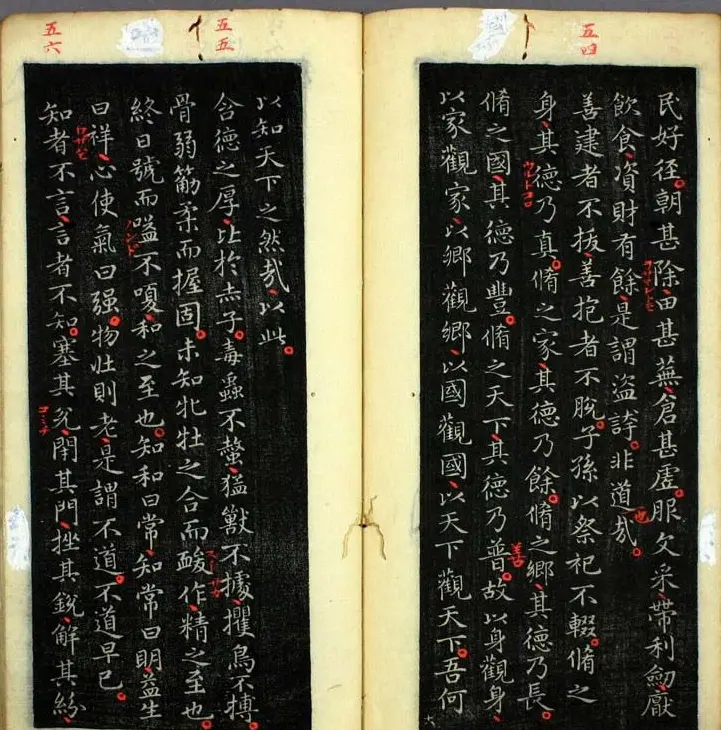 五四
民好径朝甚除田甚蕪倉甚虛服文采帶利劒厭
飲食資財有餘是謂盜誇非道哉
也
善建者不拔善抱者不脫子孫以祭祀不輟脩之
身其德乃真脩之家其德乃餘脩之鄉其德乃長
脩之國其德乃豐脩之天下其德乃普故以身觀身
善
以家觀家以鄉觀鄉以國觀國以天下觀天下吾何
以知天下之然哉以此
五五
含德之厚比於赤子毒蟲不螫猛獸不據攫鳥不搏
骨弱筋柔而握固未知牝牡之合而酸作精之至也
終日號而嗌不嗄和之至也知和曰常知常曰明益生
曰祥心使氣曰强物壯則老是謂不道不道早已
五六
知者不言言者不知塞其兌閉其門挫其銳解其紛